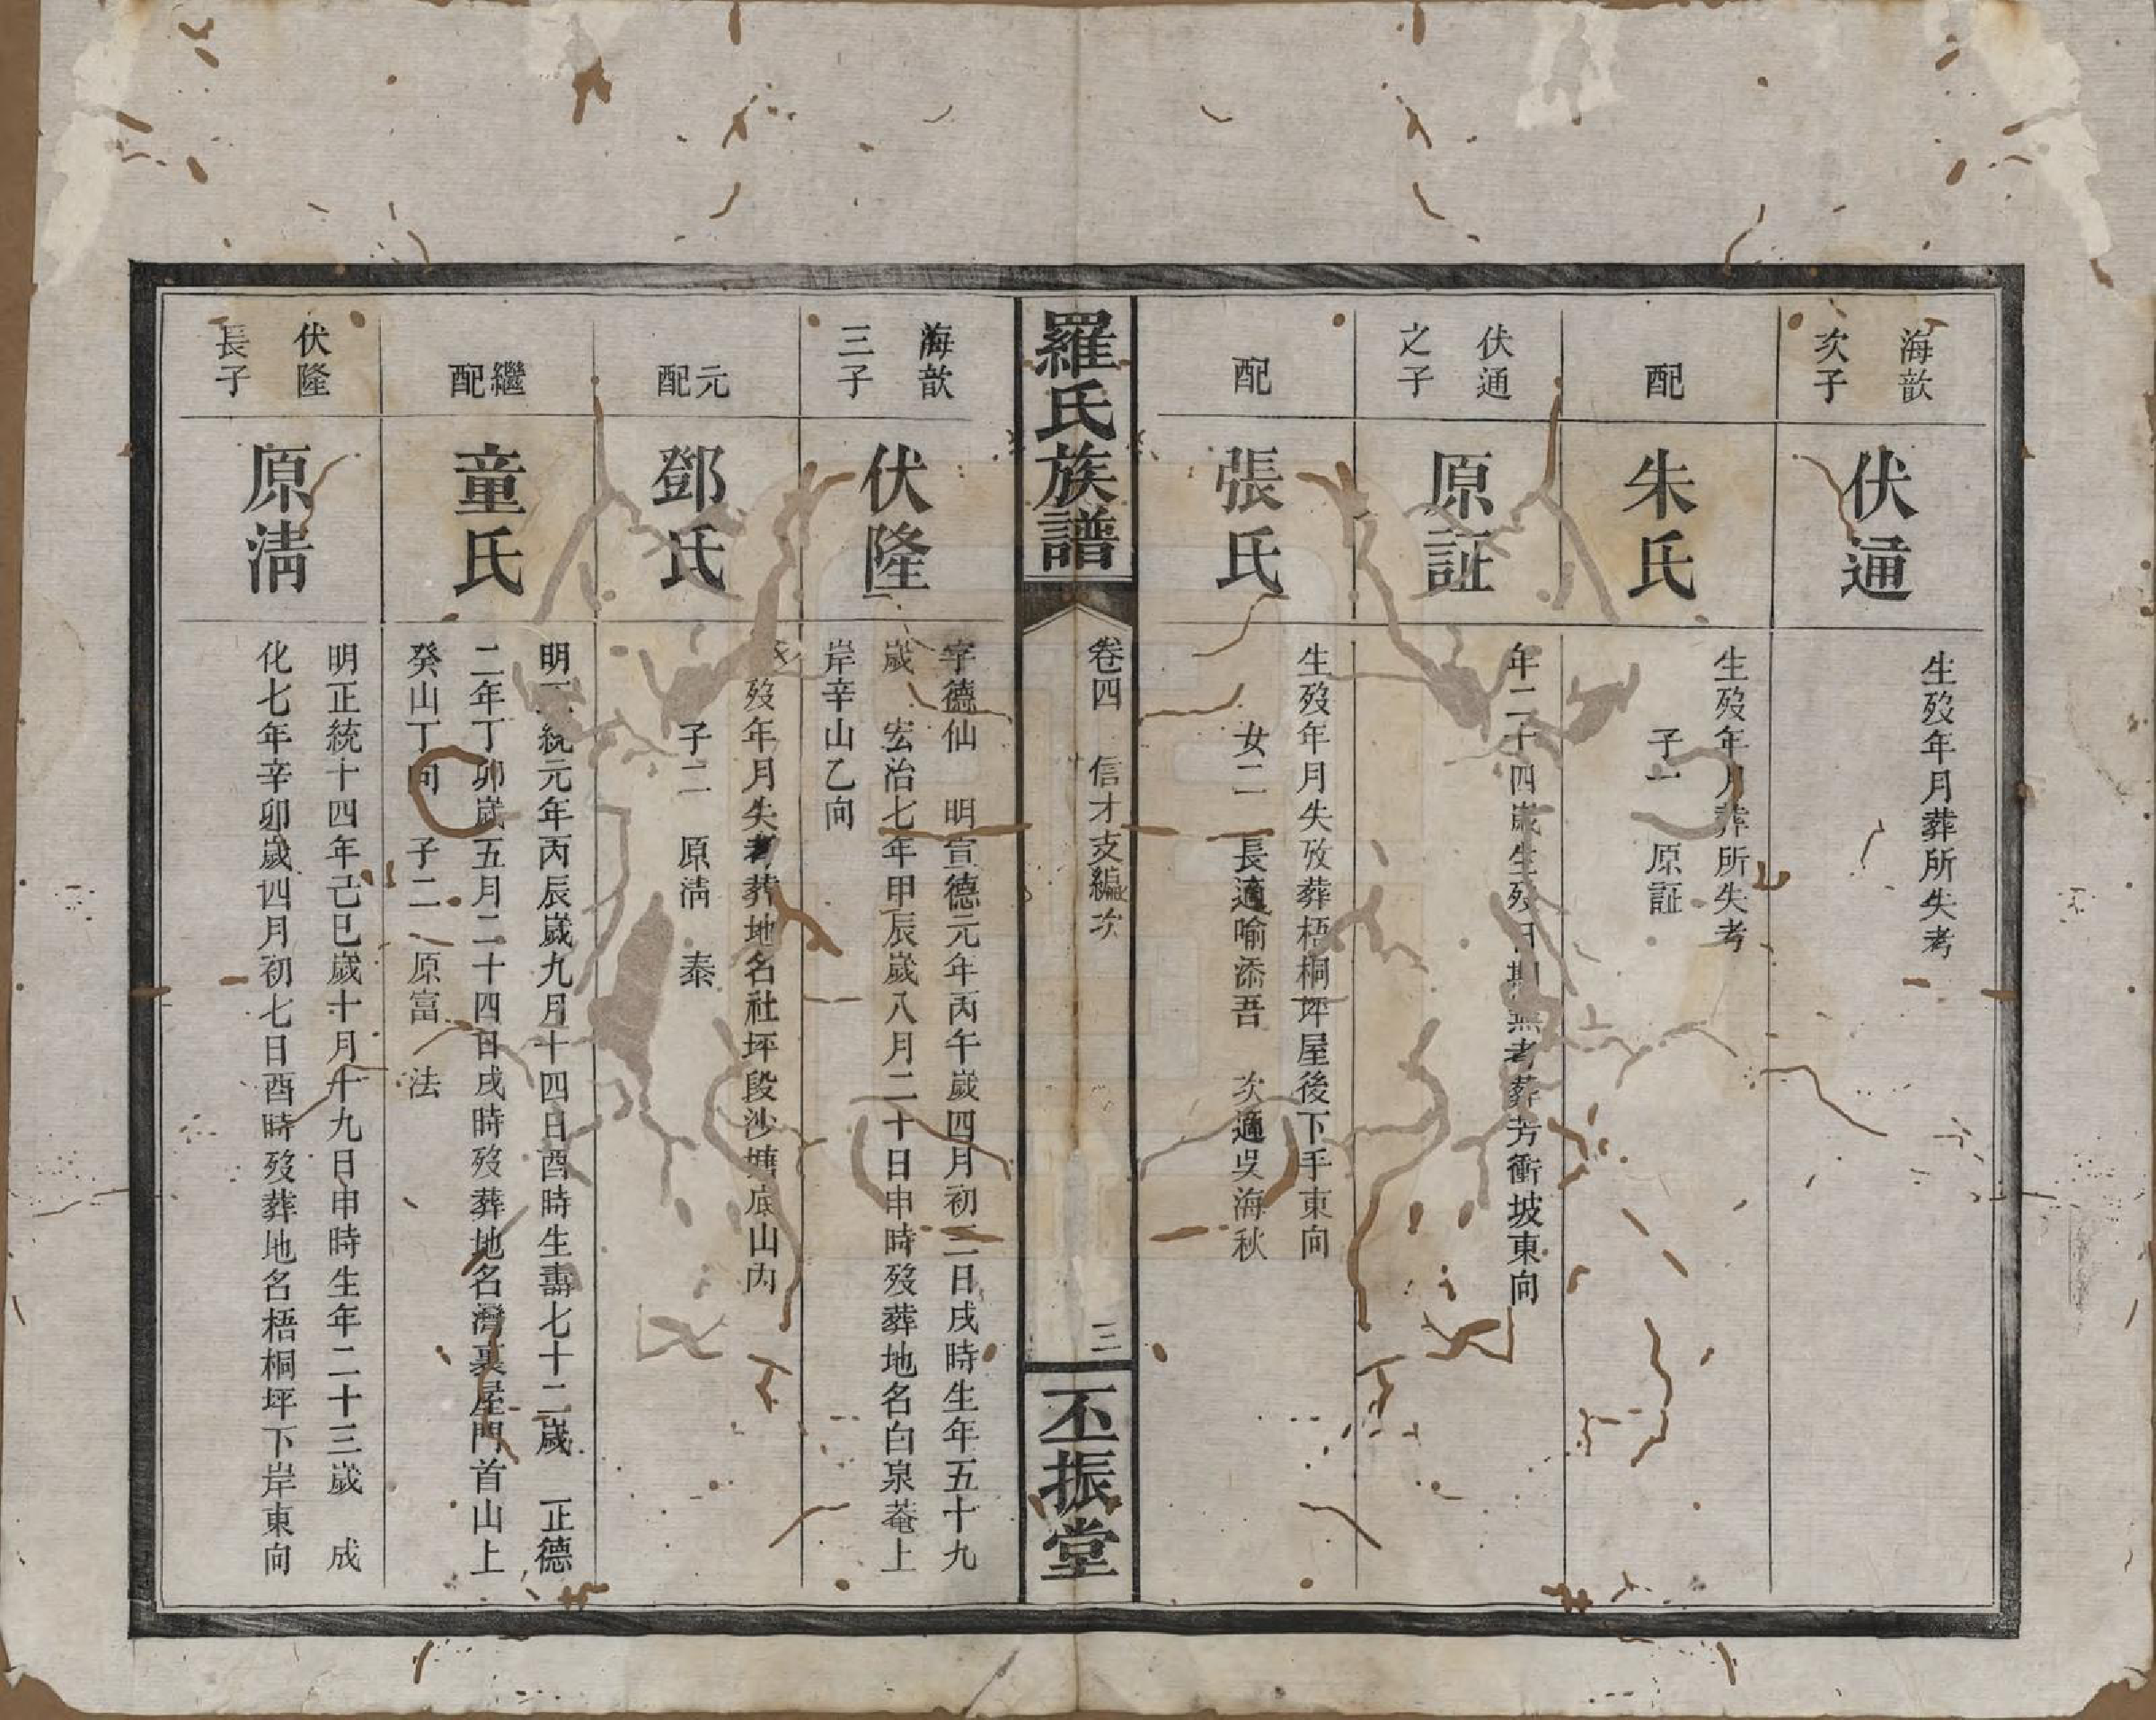 海歆
次子
伏通
生歿年月葬所失考
配
朱氏
生歿年月葬所失考
子一 原証
伏通
之子
原証
年二十四歲生歿日期無考葬芳衝坡東向
配
張氏
生歿年月失攷葬梧桐坪屋後下手東向
女二 長適喻添吾 次適吳海秋
羅氏族譜
卷四 信才支編次
三
丕振堂
海歆
三子
伏隆
字德仙 明宣德元年丙午歲四月初二日戌時生年五十九
歲 宏治七年甲辰歲八月二十日申時歿葬地名白泉菴上
岸辛山乙向
元配
鄧氏
歿年月失考葬地名社坪段沙塘底山内
子二 原清 泰
繼配
童氏
明正統元年丙辰歲九月十四日酉時生壽七十二歲 正德
二年丁卯歲五月二十四日戌時歿葬地名灣裏屋門首山上
癸山丁向 子二 原富 法
伏隆
長子
原清
明正統十四年己巳歲十月十九日申時生年二十三歲 成
化七年辛卯歲四月初七日酉時歿葬地名梧桐坪下岸東向